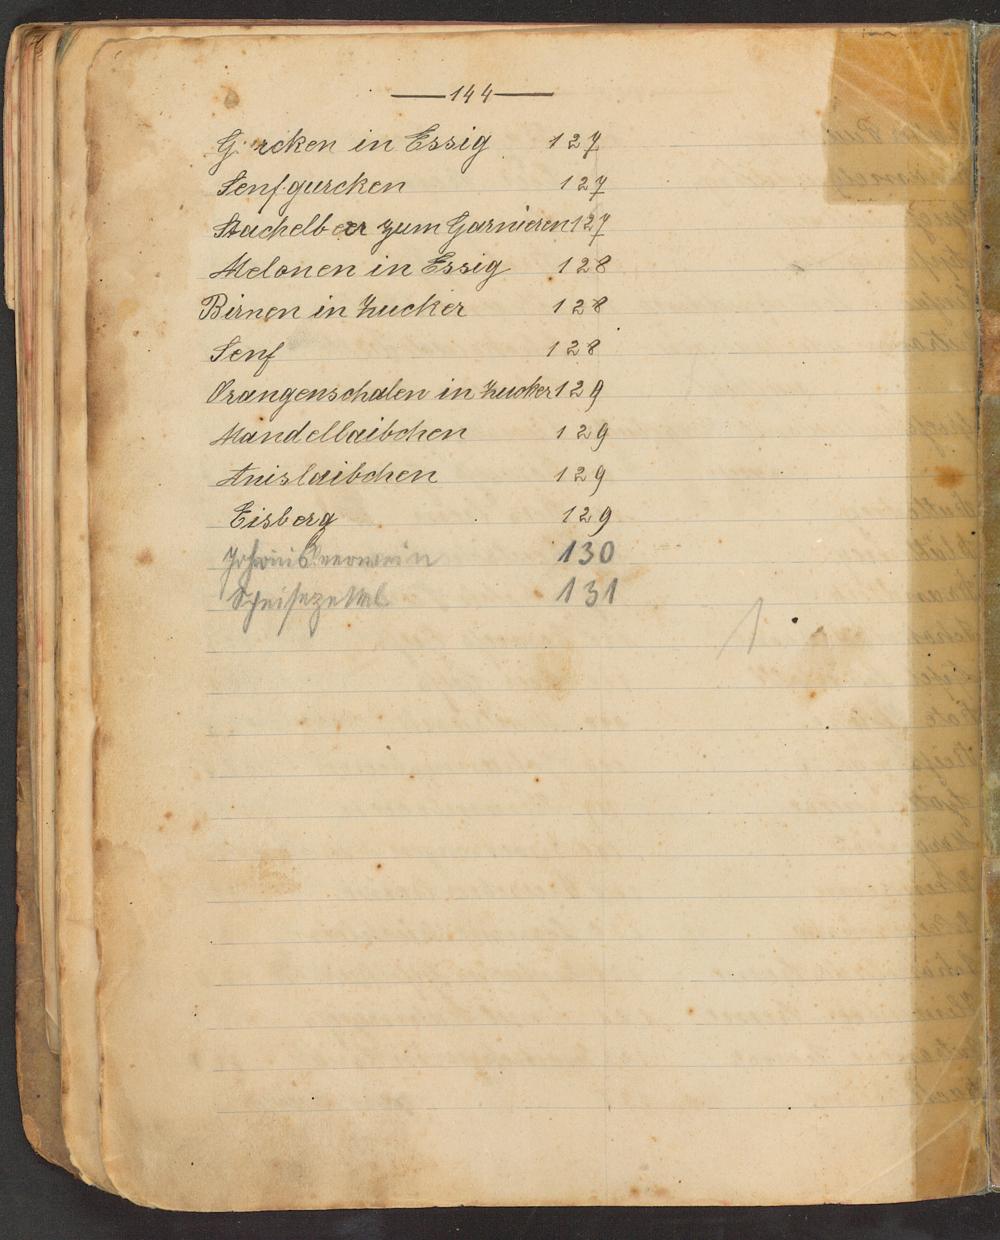 —144—
Gurcken in Essig 127
Senfgurcken 127
Stachelbeer zum Garnieren 127
Melonen in Essig 128
Birnen in Zucker 128
Senf 128
Orangenschalen in Zucker 129
Mandellaibchen 129
Anislaibchen 129
Eisberg 129
130
Speisezettel 131